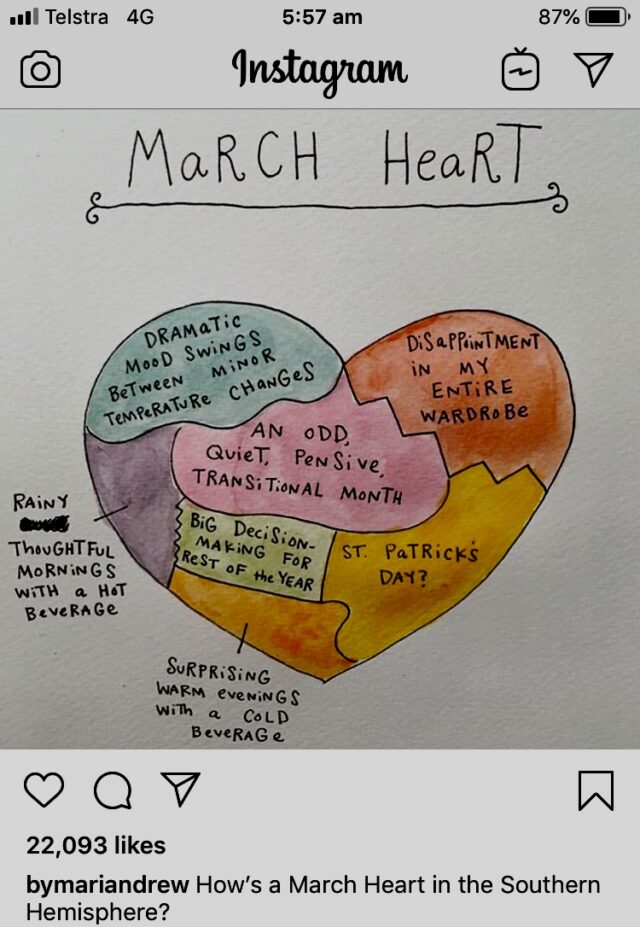 Telstra 4G 5:57 am 87%
Instagram
MaRCH HeaRT
DRAMaTic
MooD SWiNGS
BeTWeeN MiNoR
TeMPeRaTURe CHaNGeS
DiSaPPoiNTMENT
iN MY
ENTiRE
WARDRoBe
AN oDD,
QuieT, PeNSive,
TRANSiTioNAL MoNTH
RAiNY
THouGHTFuL
MoRNiNGS
WiTH a HoT
BeveRAGe
BiG DeciSioN-
MAKiNG FoR
ReST oF the YEAR
ST. PaTRicK's
DAY?
SuRPRiSiNG
WARM eveNiNGS
WiTH a CoLD
BeveRAGe
22,093 likes
bymariandrew How's a March Heart in the Southern
Hemisphere?